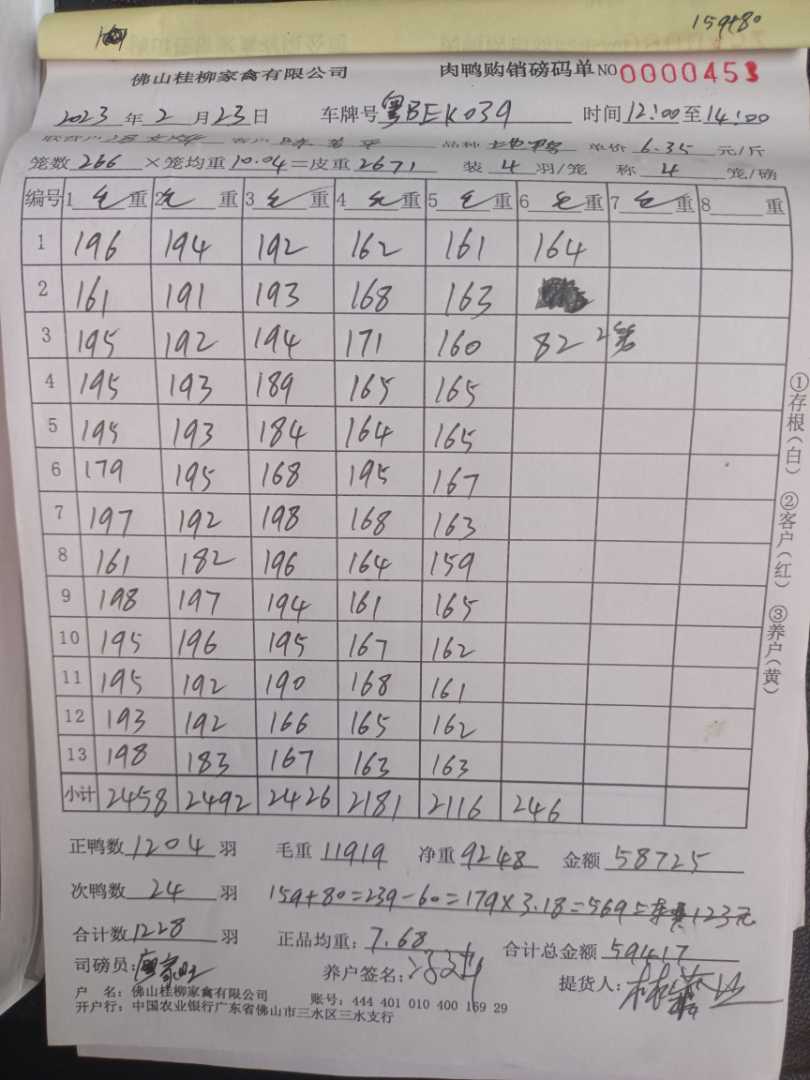 159+80
佛山桂柳家禽有限公司 肉鸭购销磅码单 NO 0000453
2023 年 2 月 23 日 车牌号 粤BEK039 时间 12:00 至 14:00
品种 单价 6.35 元/斤
笼数 266 ×笼均重 10.04 =皮重 2671 装 4 羽/笼 称 4 笼/磅
编号 1 毛 重 2 毛 重 3 毛 重 4 毛 重 5 毛 重 6 毛 重 7 毛 重 8 重
1 196 194 192 162 161 164
2 161 191 193 168 163
3 195 192 194 171 160 82 2笼
4 195 193 189 165 165
5 195 193 184 164 165
6 179 195 168 195 167
7 197 192 198 168 163
8 161 182 196 164 159
9 198 197 194 161 165
10 195 196 195 167 162
11 195 192 190 168 161
12 193 192 166 165 162
13 198 183 167 163 163
小计 2458 2492 2426 2181 2116 246
①存根(白) ②客户(红) ③养户(黄)
正鸭数 1204 羽 毛重 11919 净重 9248 金额 58725
次鸭数 24 羽 159+80=239-60=179×3.18=569 123元
合计数 1228 羽 正品均重: 7.68 合计总金额 59417
司磅员: 养户签名: 提货人:
户 名: 佛山桂柳家禽有限公司 账号: 444 401 010 400 169 29
开户行: 中国农业银行广东省佛山市三水区三水支行